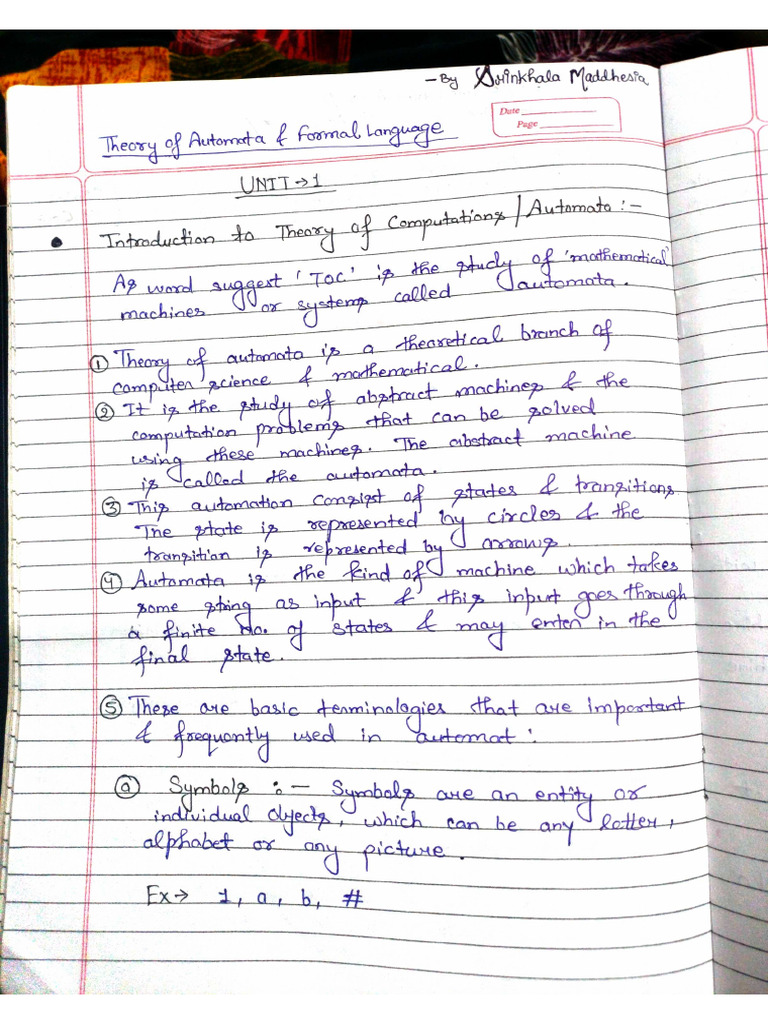 - By Srinkhala Maddhesia
Date
Page
Theory of Automata & Formal Language
UNIT → 1
• Introduction to Theory of Computations / Automata :-
As word suggest 'TOC' is the study of 'mathematical'
machines or systems called automata.
① Theory of automata is a theoretical branch of
computer science & mathematical.
② It is the study of abstract machines & the
computation problems that can be solved
using these machines. The abstract machine
is called the automata.
③ This automation consist of states & transitions
The state is represented by circles & the
transition is represented by arrows.
④ Automata is the kind of machine which takes
some sting as input & this input goes through
a finite No. of states & may enter in the
final state.
⑤ These are basic terminologies that are important
& frequently used in automat :
ⓐ Symbols :- Symbols are an entity or
individual objects, which can be any letter,
alphabet or any picture.
Ex → 1, a, b, #